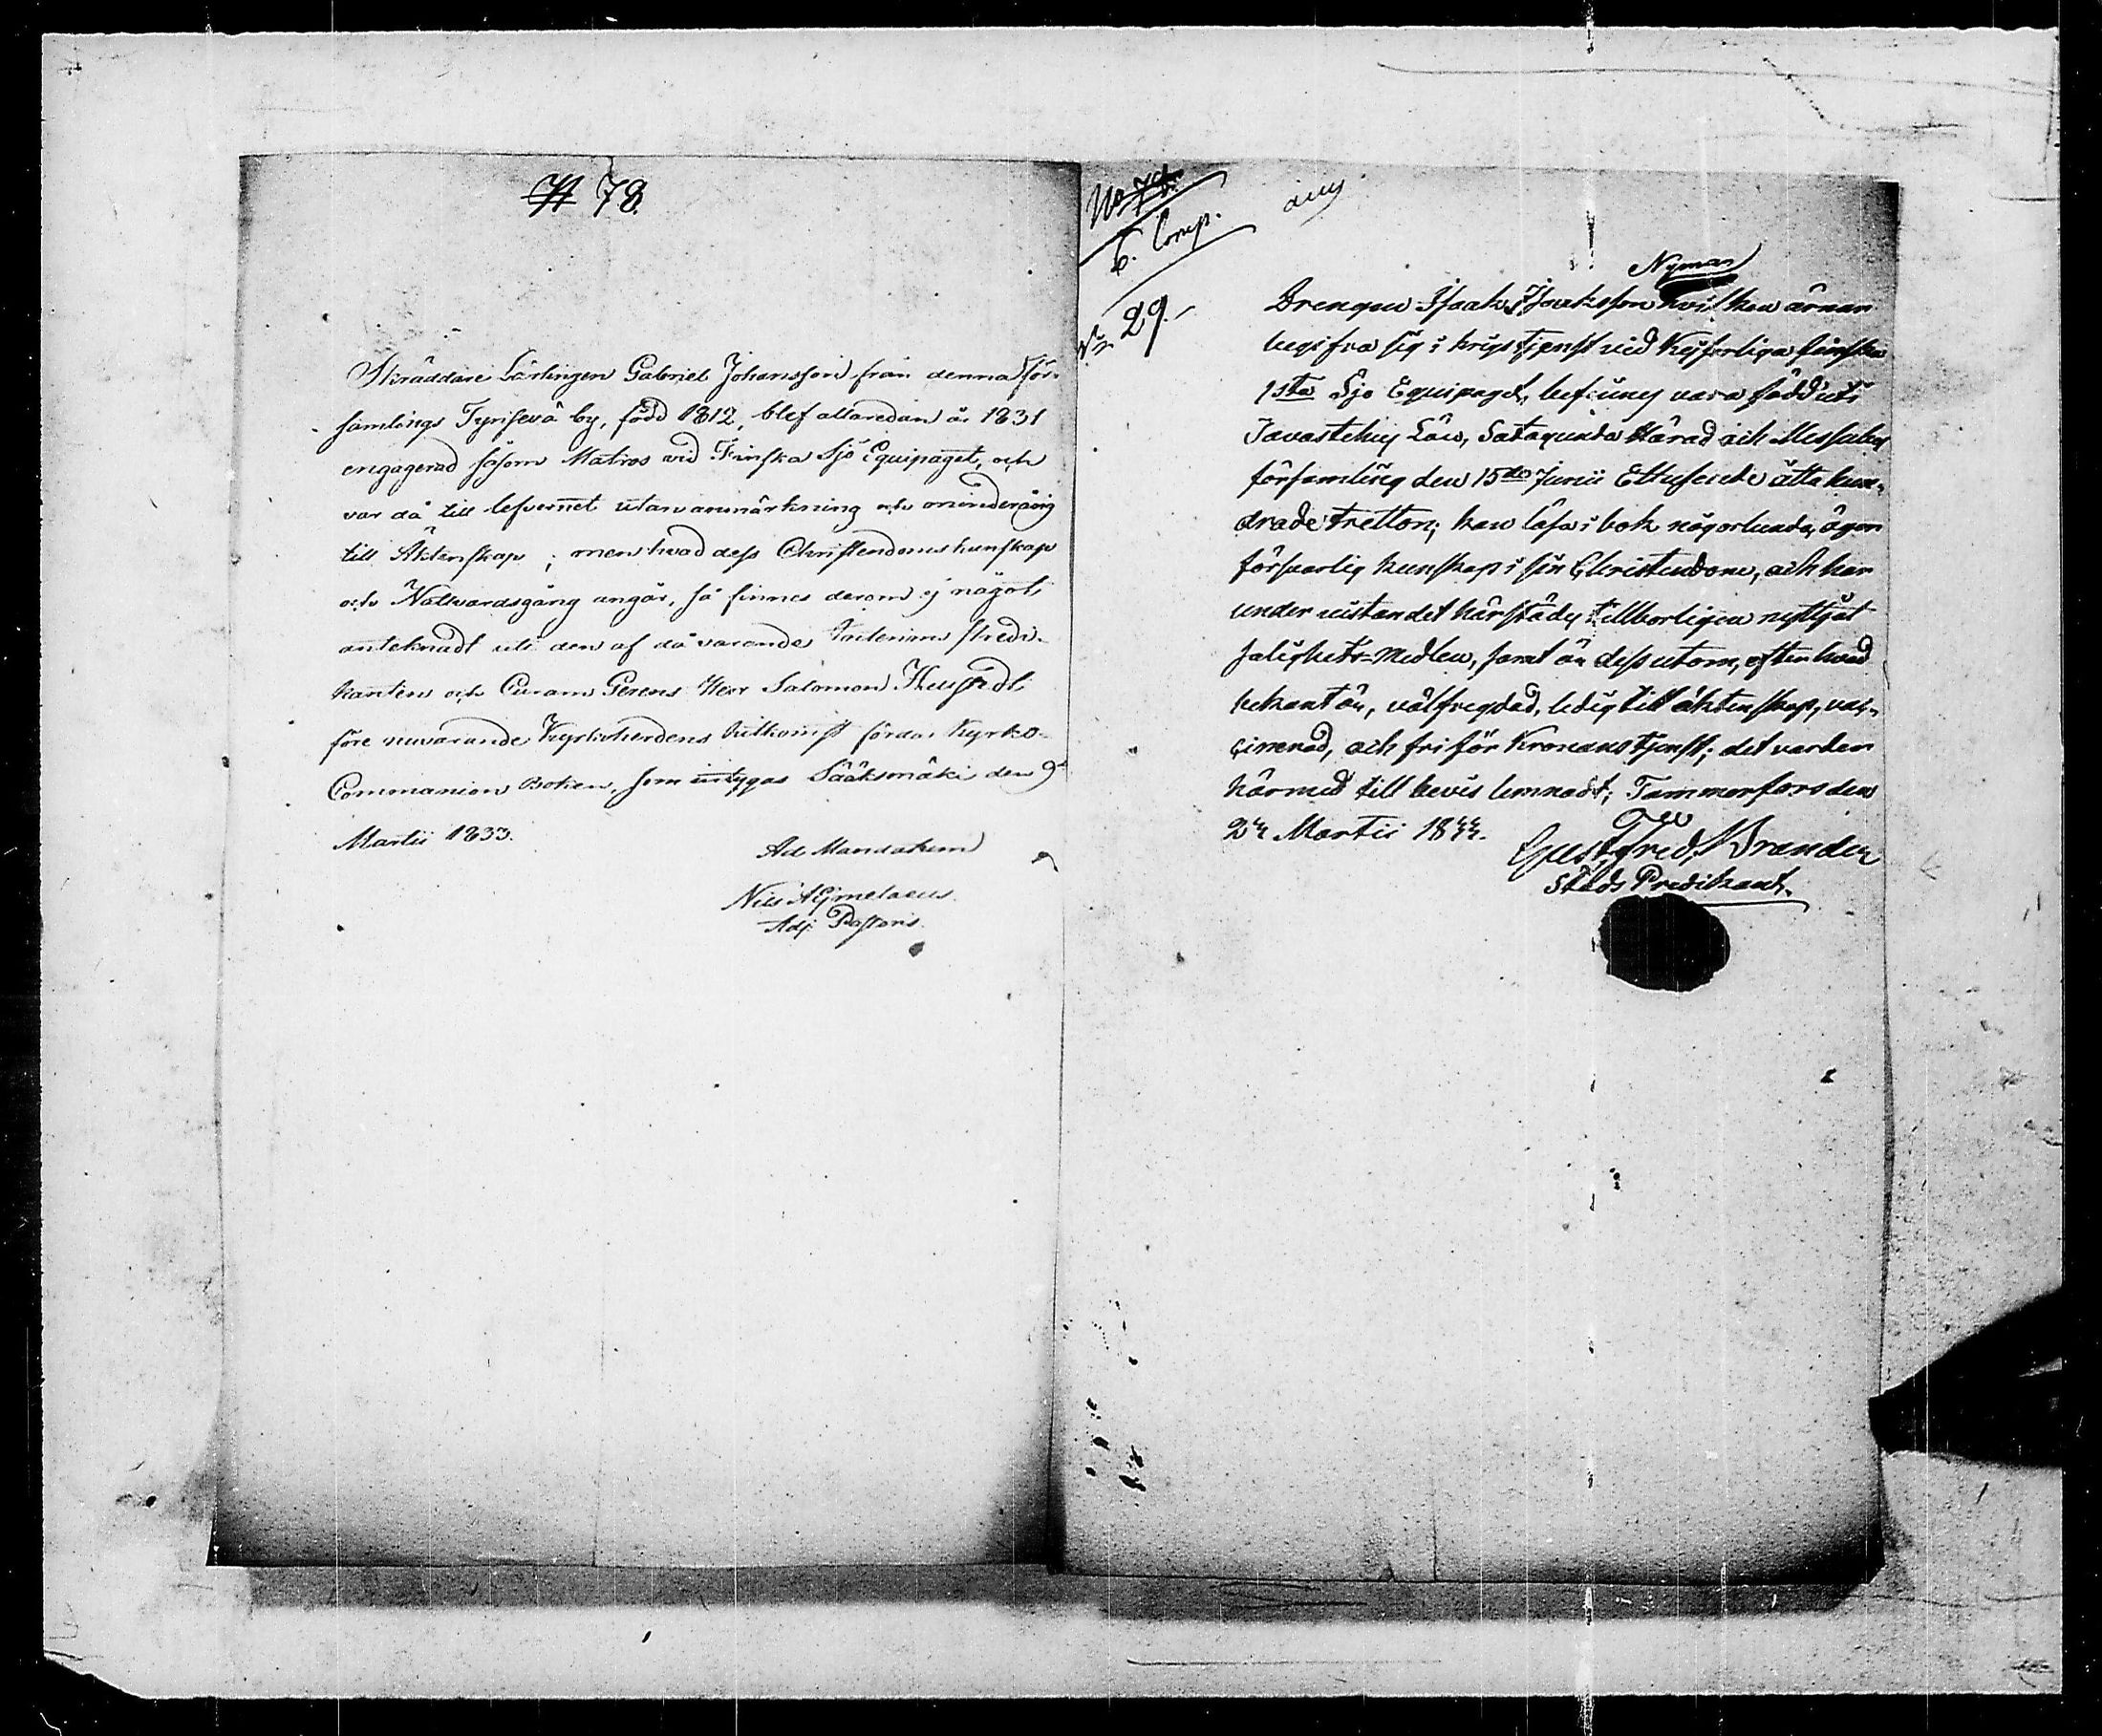 78.
Skräddare Lärlingen Gabriel Johansson från denna för-
samlings Tyrisevä by, född 1812, blef allaredan år 1831
engagerad såsom Matros vid Finska Sjö Equipaget, och
var då till lefvernet utan anmärkning och minderårig
till Äktenskap; men hvad dess Christendoms kunskap
och Nattvardsgång angår, så finnes derom ej något
anteknadt uti den af då varande
kanten och Curam Gerens Herr Salomon
före nuvarande Kyrkoherdens hitkomst förda Kyrko-
Communion Boken, som intygas Sääksmäki den 9de
Martii 1833.
Ad Mandatum
Nils Aejmelaeus.
Adj. Pastoris.
No 78.
6. Comp.
No 29.
Nyman
Drengen Isaak Isaaksson hvilken ärnar
begifva sig i krigstjenst vid Kejserliga finska
1sta Sjö Equipaget, befinnes vara född uti
Tavastehus Län, Satagunda Härad och Messuby
församling den 15de Junii Ettusende åtta hun-
drade tretton; kan läsa i bok någorlunda, äger
försvarlig kunskap i sin Christendom, och har
under vistandet härstädes tillbörligen nyttjat
salighets-Medlen, samt är dessutom, efter hvad
bekant är, välfregdad, ledig till äktenskap, vac-
cinerad, och fri för Kronans tjenst; det varder
härmed till bevis lemnadt; Tammerfors den
Martii 1833.
Gust. Fred. Brander
Stads Predikant.